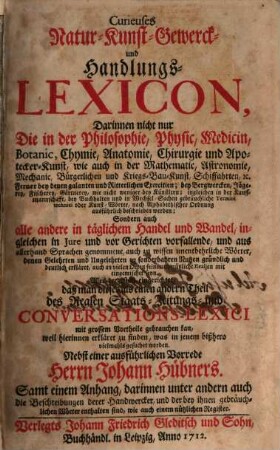 Curieuses
Natur-Kunst-Gewerck-
und
Handlungs-
LEXICON,
Darinnen nicht nur
Die in der Philosophie, Physic, Medicin,
Botanic, Chymie, Anatomie, Chirurgie und Apo-
tecker-Kunst, wie auch in der Mathematic, Astronomie,
Mechanic, Bürgerlichen und Kriegs-Bau-Kunst, Schiffahrten, ꝛc.
Ferner bey denen galanten und Ritterlichen Exercitien; bey Bergwercken, Jäge-
rey, Fischerey, Gärtnerey, wie nicht weniger
nach Alphabetischer Ordnung
ausführlich beschrieben werden;
Sondern auch
alle andere in täglichem Handel und Wandel, in-
gleichen in Jure und vor Gerichten vorfallende, und aus
allerhand Sprachen genommene, auch zu wissen unentbehrliche Wörter,
denen Gelehrten und Ungelehrten zu sonderbahrem Nutzen gründlich und
deutlich erkläret,
daß man den andern Theil
des Realen Staats-Zeitungs- und
CONVERSATIONS-LEXICI
mit grossem Vortheile gebrauchen kan,
weil hierinnen erkläret zu finden, was in jenem bißhero
Nebst einer ausführlichen Vorrede
Herrn Johann Hübners.
Samt einem Anhang, darinnen unter andern auch
die Beschreibungen derer Handwercker, und der bey ihnen gebräuch-
lichen Wörter enthalten sind, wie auch einem nützlichen Register.
Verlegts Johann Friedrich Gleditsch und Sohn,
Buchhändl. in Leipzig, Anno 1712.